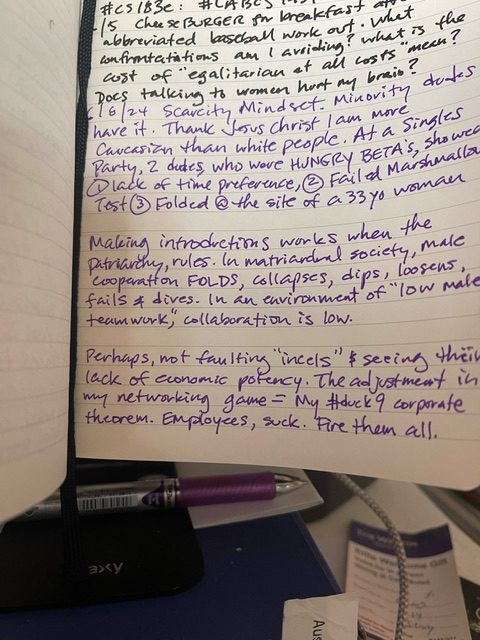 #CS1B3C: #CABCS
/5 CheeseBURGER for breakfast after
abbreviated baseball work out. What
confrontations am I avoiding? what is the
cost of "egalitarian at all costs" mean?
Does talking to women hurt my brain?
6/8/24 Scarcity Mindset. Minority dudes
have it. Thank Jesus Christ I am more
Caucasian than white people. At a Singles
Party, 2 dudes, who were HUNGRY BETA's, showed
① lack of time preference, ② Failed Marshmallow
Test ③ Folded @ the site of a 33 yo woman
Making introductions works when the
patriarchy, rules. In matriarchal society, male
cooperation FOLDS, collapses, dips, loosens,
fails & dives. In an environment of "low male
teamwork," collaboration is low.
Perhaps, not faulting "incels" & seeing their
lack of economic potency. The adjustment in
my networking game = My #duck9 corporate
theorem. Employees, suck. Fire them all.
Aus